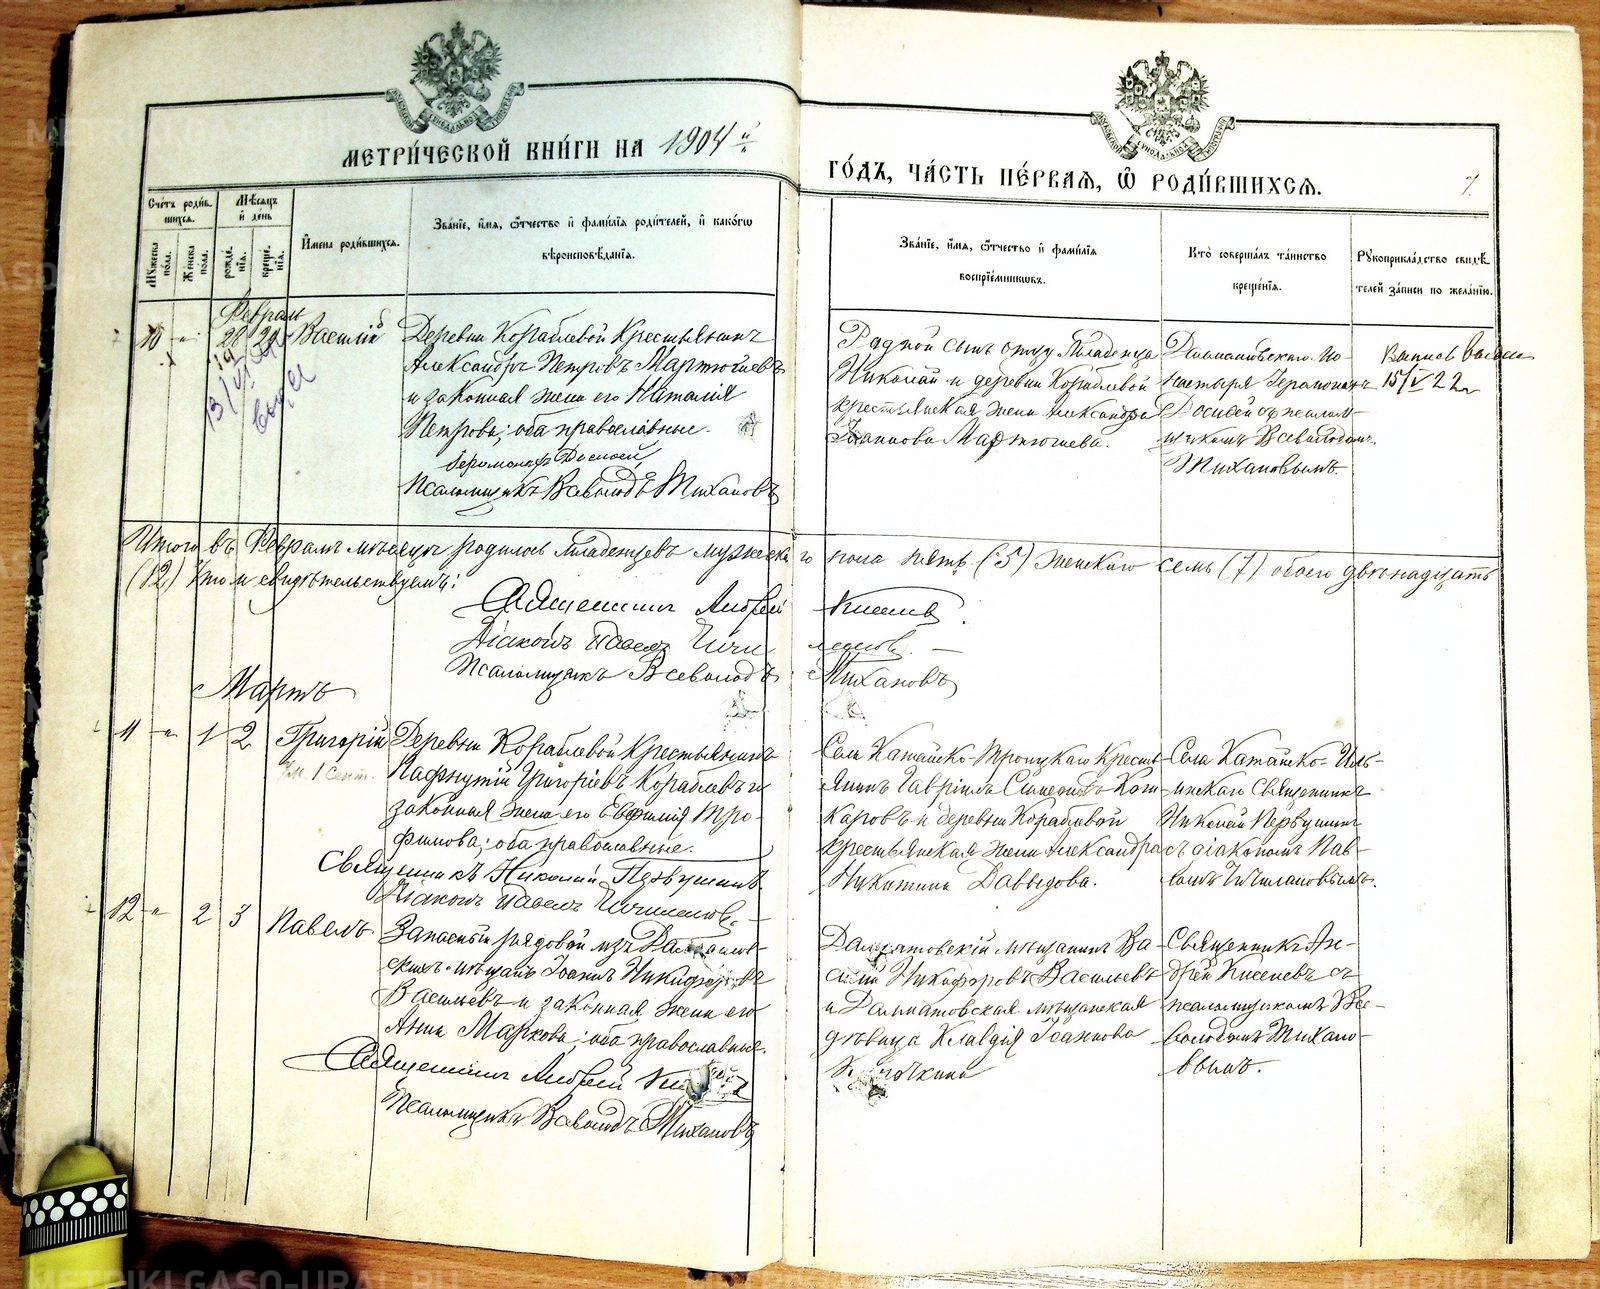 МЕТРИ́ЧЕСКОЙ КНИ́ГИ НА 1904 й
ГО́ДЪ, ЧА́СТЬ ПЕ́РВАЯ, Ѽ РОДИ́ВШИХСЯ.
7.
Сче́тъ роди́вшихся.
Мѣсяцъ и день
Му́жеска по́ла.
Же́нска по́ла.
рожде́нія.
креще́нія.
Имена роди́вшихся.
Зва́ніе, и́мя, ѻ́тчество и фами́лія роди́телей, и како́гѡ
вѣроисповѣ́данія.
Зва́ніе, и́мя, ѻ́тчество и фами́лія
воспріе́мниковъ.
Кто̀ соверша́лъ та́инство
креще́нія.
Рукоприкла́дство свидѣ́-
телей за́писи по жела́нію.
Февраль
10 - " - 28 29 Василій
Деревни Кораблевой Крестьянинъ
Александръ Петровъ Мартюшевъ
и законная жена его Наталія
Петрова; оба православные.
Іеромонахъ Досиѳей
Псаломщикъ Всеволодъ Тихановъ
Родной сынъ отцу Младенца
Николай и деревни Кораблевой
крестьянская жена Александра
Іоаннова Мартюшева.
Далматовскаго мо-
настыря Іеромонахъ
Досиѳей съ псалом-
щикомъ Всеволодомъ
Тихановымъ
Выпись выдана
15/V 22 г
13/VI
Итого въ Февралѣ мѣсяцѣ родилось младенцевъ мужеска го пола пять (5) женскаго семь (7) обоего двѣнадцать
(12) Что и свидѣтельствуемъ:
Священникъ Андрей Киселевъ.
Діаконъ Павелъ Ичи леновъ. -
Псаломщикъ Всеволодъ Тихановъ
Мартъ
11 - " - 1 2 Григорій
1 Сент.
Деревни Кораблевой крестьянинъ
Пафнутій Григоріевъ Кораблевъ и
законная жена его Евфимія Тро-
фимова; оба православные.
Священникъ Николай Первушинъ
Діаконъ Павелъ Ичиленовъ. -
Села Катайско-Троицкаго Кресть-
янинъ Гавріилъ Симеоновъ Кош-
каровъ и деревни Кораблевой
крестьянская жена Александра
Никитина Давыдова.
Села Катайско-Иль-
инскаго Священникъ
Николай Первушинъ
съ діакономъ Пав-
ломъ
12 - " - 2 3 Павелъ
Запасный рядовой изъ Далматов-
скихъ мѣщанъ Іоаннъ Никифоровъ
Васильевъ и законная жена его
Анна Маркова; оба православные.
Священникъ Андрей
Псаломщикъ Всеволодъ Тихановъ
Далматовскій мѣщанинъ Ва-
силій Никифоровъ Васильевъ
и Далматовская мѣщанская
дѣвица Клавдія Іоаннова
Священникъ Ан-
дрей Киселевъ съ
псаломщикомъ Все-
володомъ Тихано-
вымъ.
METRIKI.GASO-URAL.RU